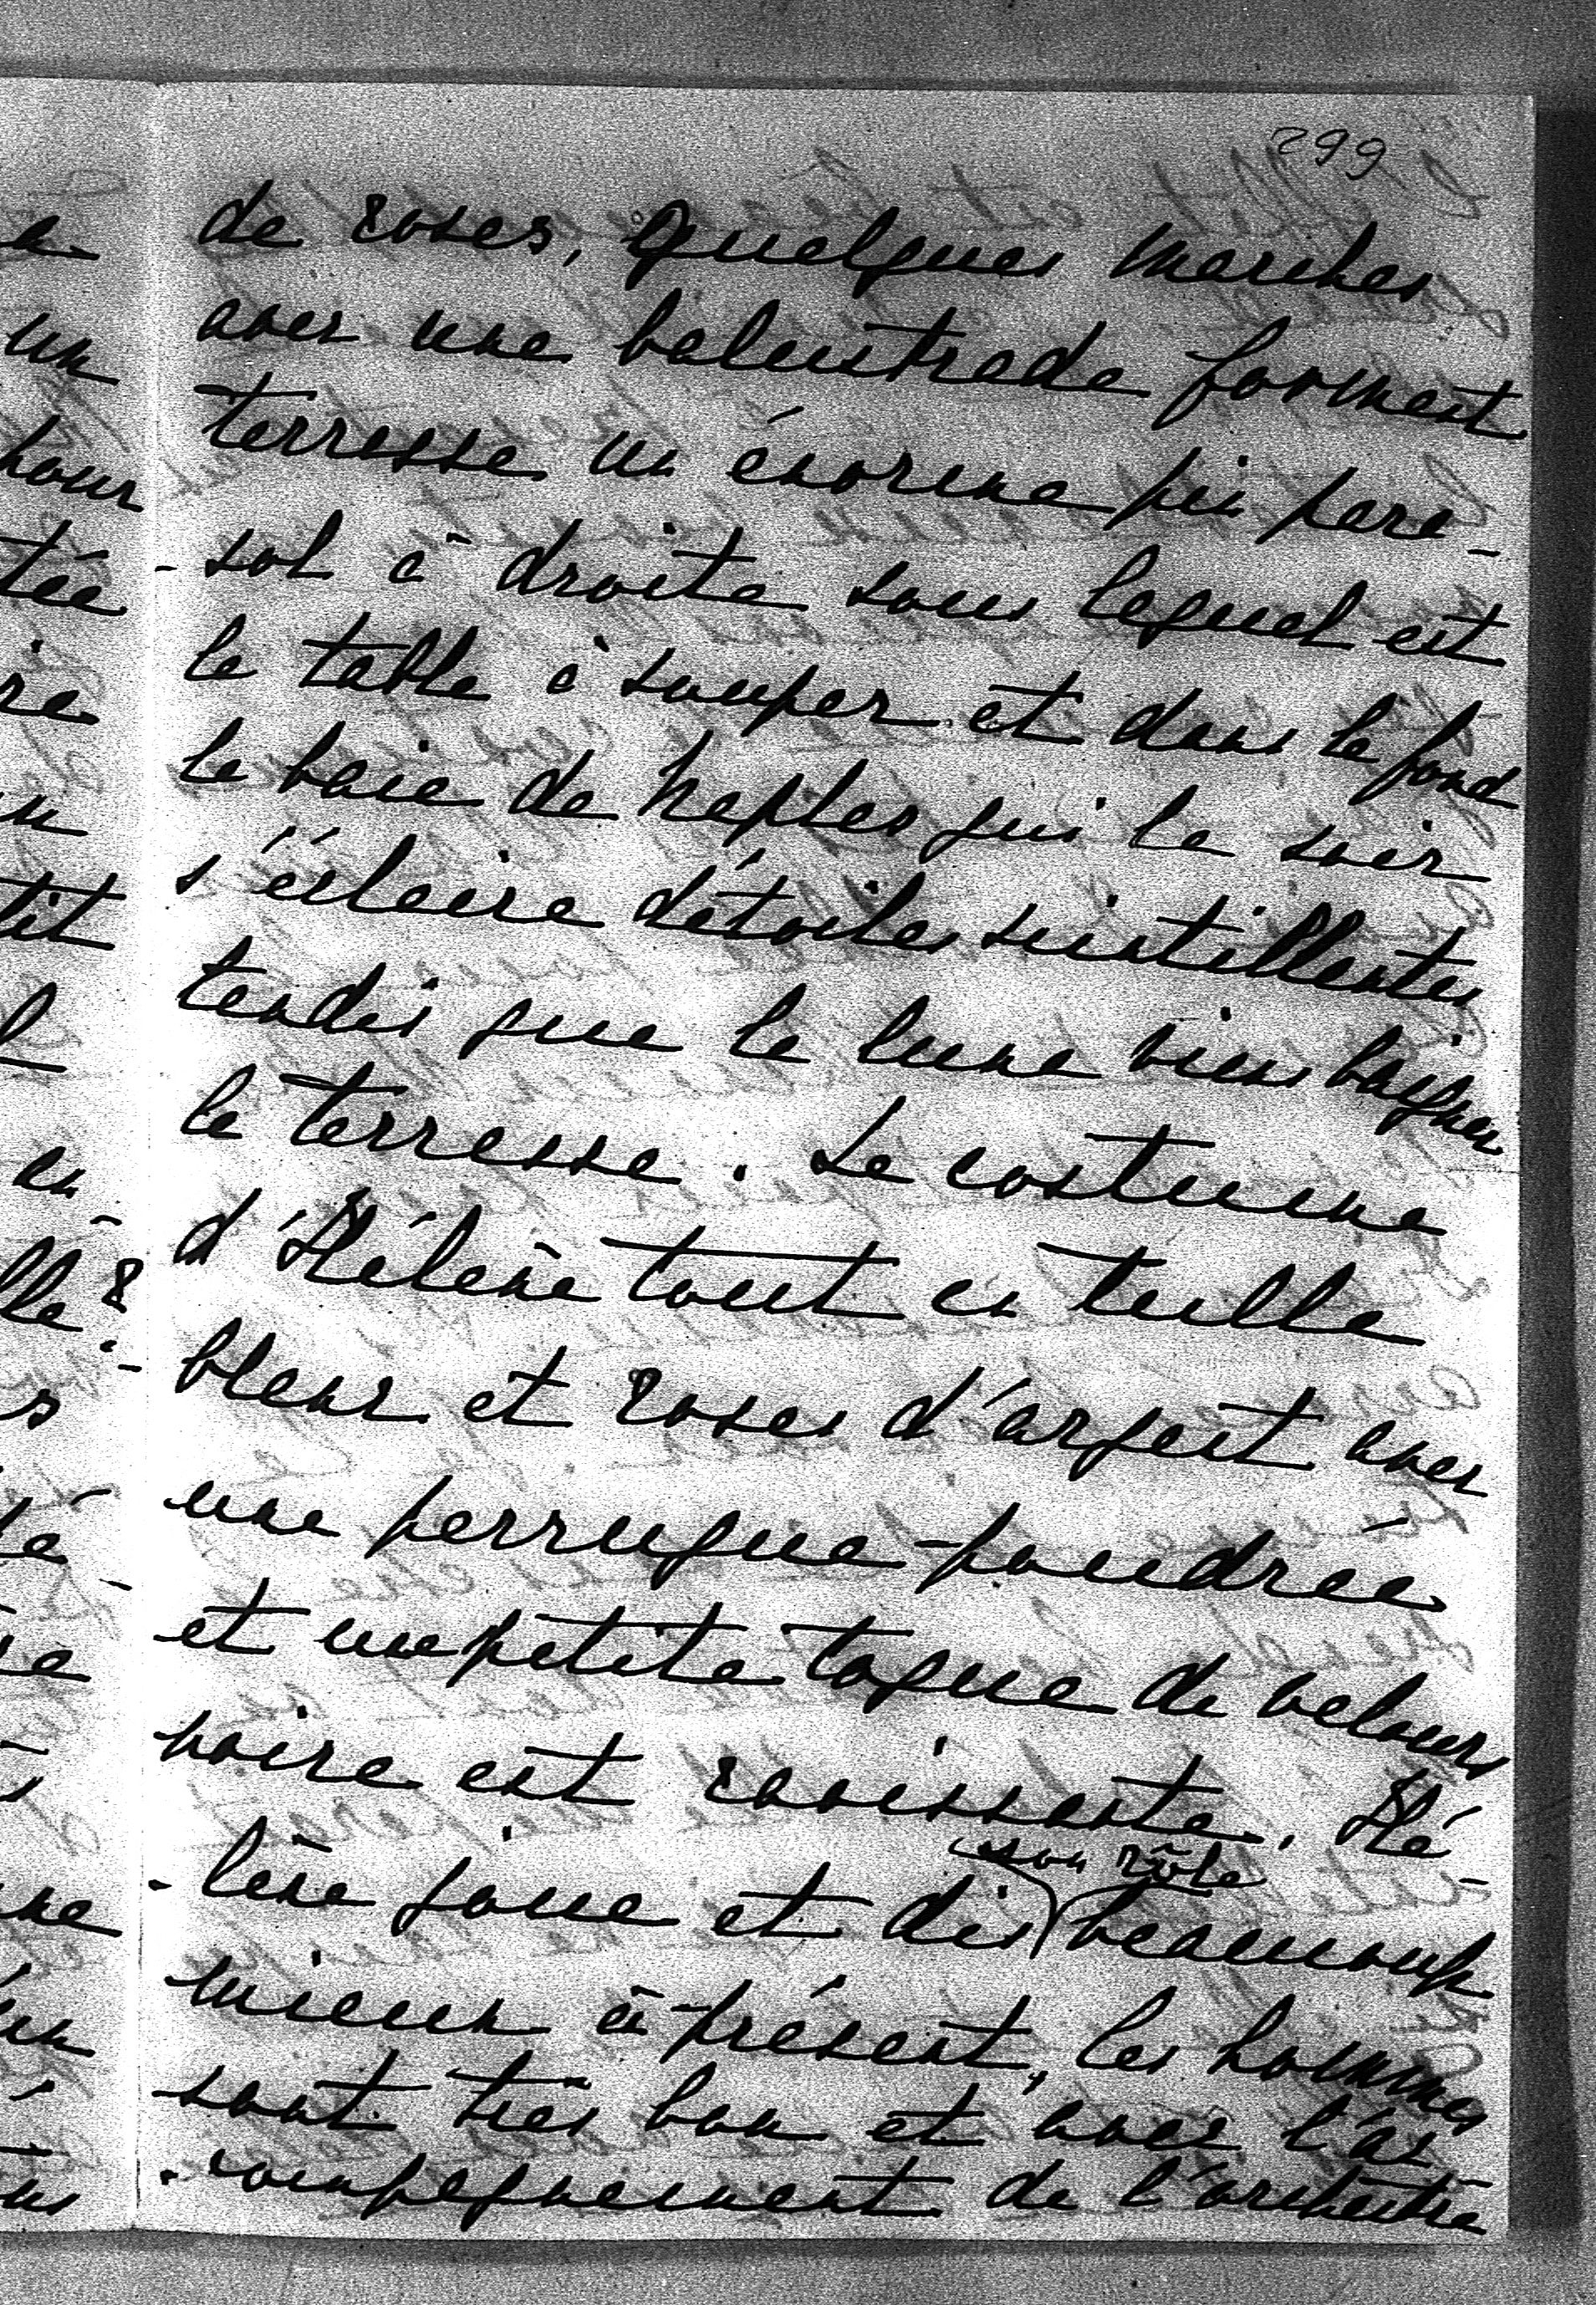 299
de roses, quelques marches
avec une balustrade forment
terrasse un énorme pin para-
-sol à droite sous lequel est
la table à souper et dans le fond
la baie de Naples qui le soir
s'éclaire d'étoiles sintillantes
tandis que la lune vien baigner
la terrasse. Le costume
d'Hélène tout en tulle
bleus et roses d'argent avec
une perruque poudrée
et une petite toque de velours
noire est ravissante. Hé-
-lène joue et dis son rôle beaucoup
mieux à présent, les hommes
sont très bon et avec l'ac-
-compagnement de l'orchestre